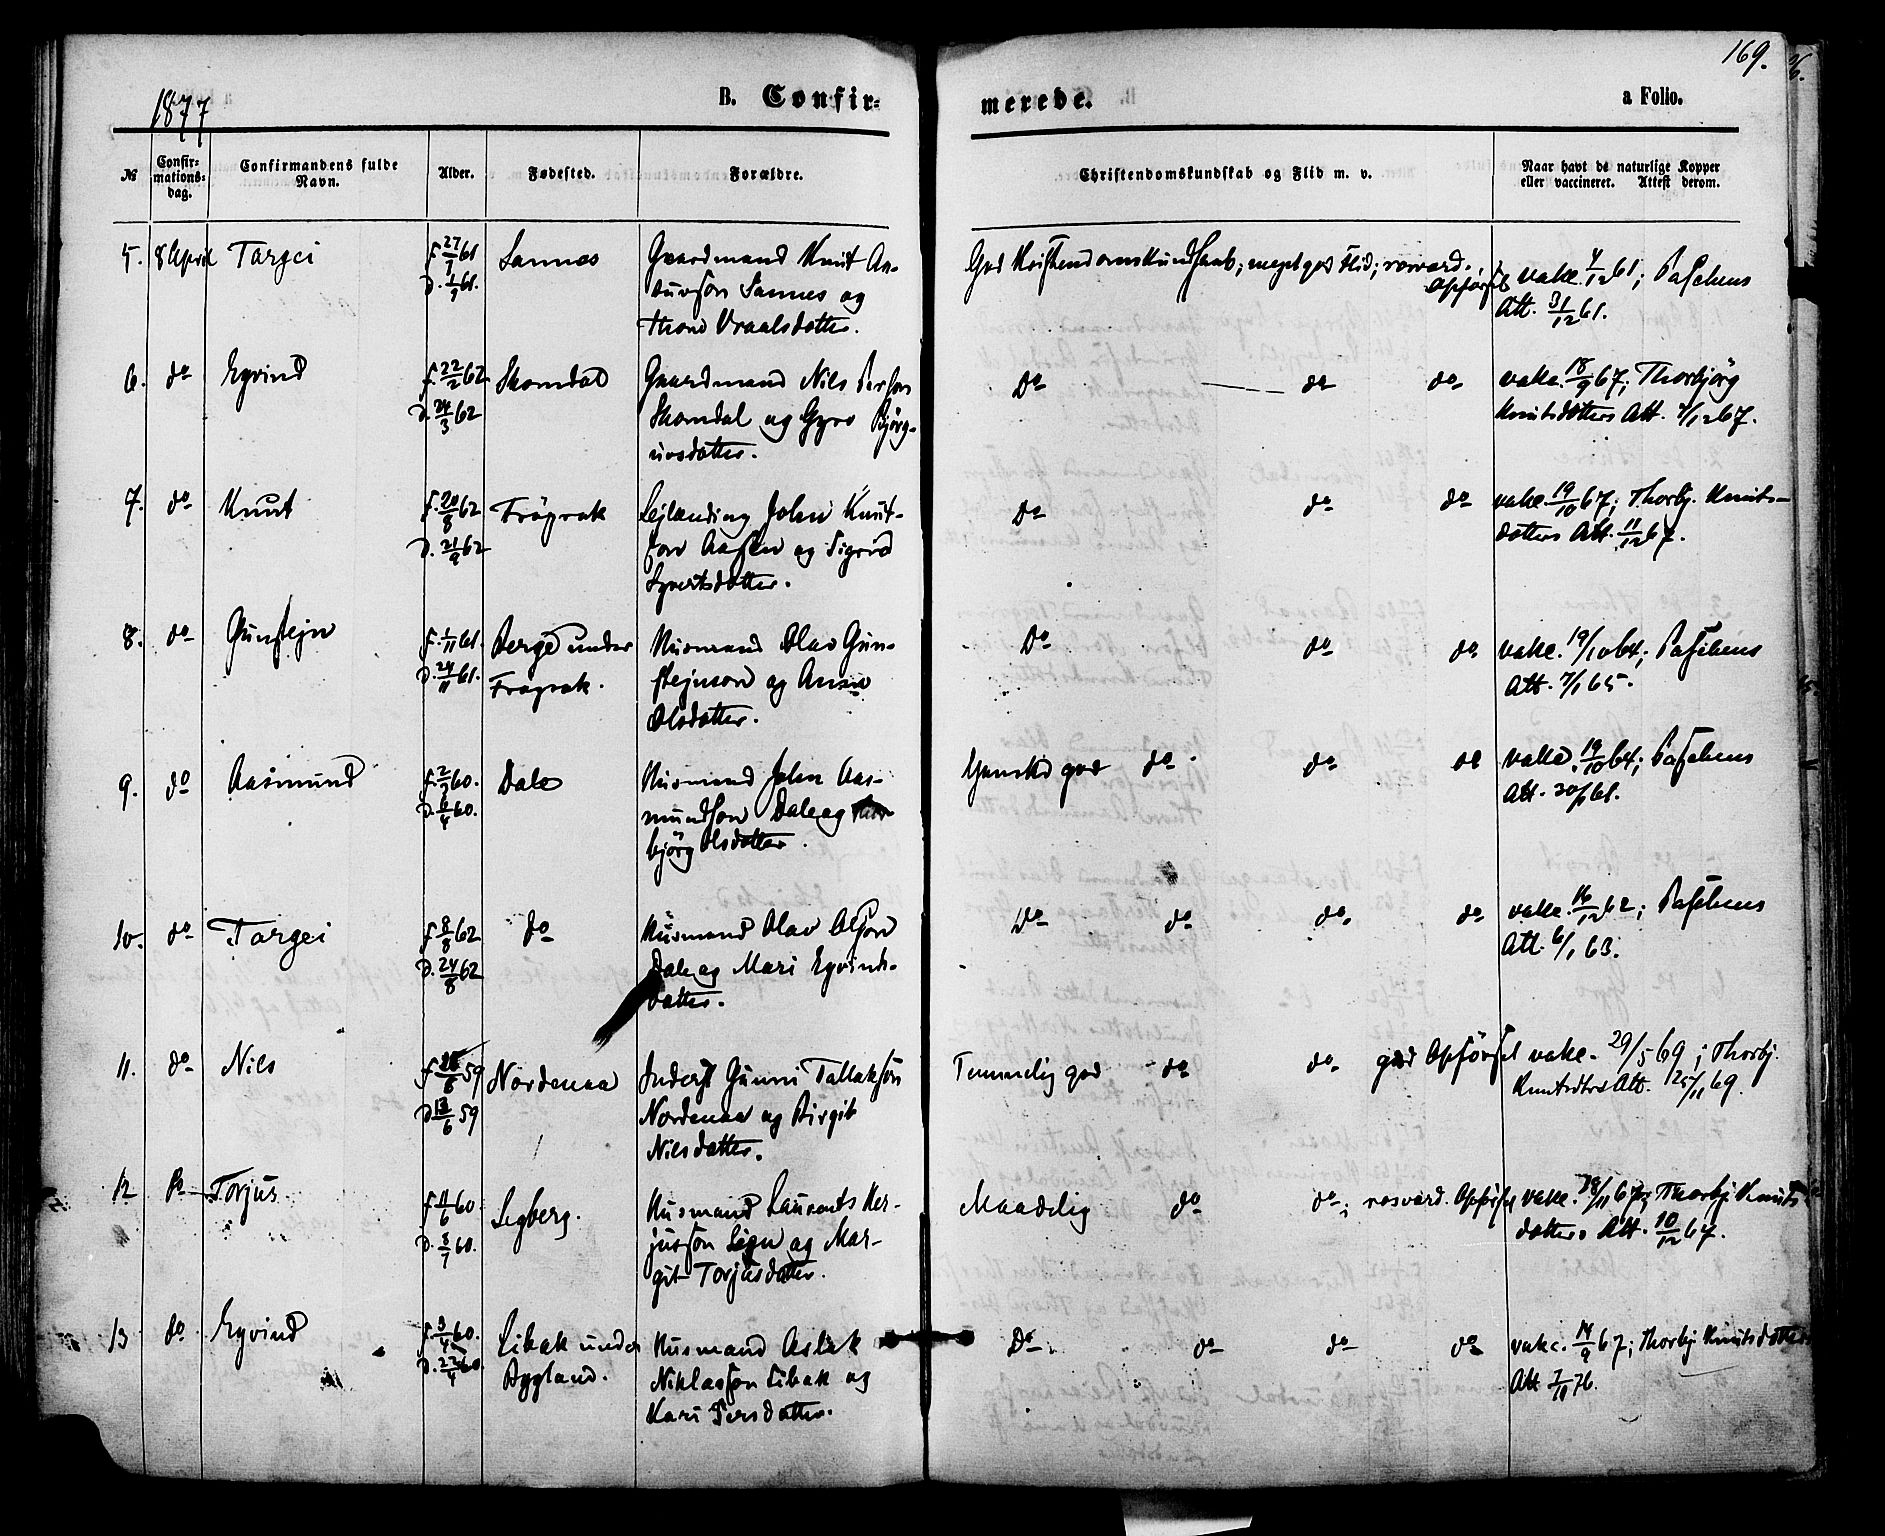 169.
1877
B. Confir-
merede.
a Folio.
№
Confir-
mations-
dag.
Confirmandens fulde
Navn.
Alder.
Fødested.
Forældre.
Christendomskundskab og Flid m. v.
Naar havt de naturlige Kopper
eller vaccineret. Attest derom.
5. 8 April Targei f. 27/7 61 Sannes Gaardmand Knut Aa-
d. 1/9 61. suvson Sannes og
Thone Vraalsdatter.
God Kristendomskundskab; meget god Flid; rosværd.
Opførsel
vakc. 4/12 61; Paschens
Att. 31/12 61.
6. do Eyvind f. 22/2 62 Skomdal Gaardmand Nils Person
d. 24/3 62 Skomdal og Gyro Bjørg-
uvsdatter.
Do do do
vakc. 18/9 67; Thorbjörg
Knutsdatters Att. 4/12 67.
7. do Knut f. 20/8 62 Fröyrak Lejlænding John Knut-
d. 21/9 62 son Aasen og Sigrid
Syvertsdatter.
Do do do
vakc. 19/10 67; Thorbj. Knuts-
datters Att. 11/12 67.
8. do Gunstejn f. 1/11 61. Berge under Husmand Olav Gun-
d. 24/11 61. Fröyrak. stejnson og Anne
Olsdatter.
Do do do
vakc. 19/10 64; Paschens
Att. 7/1 65.
9. do Aasmund f. 2/3 60. Dale Husmand John Aas-
d. 6/4 60. mundson Dale og Thor-
björg Olsdatter.
Ganske god do do do
vakc. 19/10 64; Paschens
Att.
10. do Targei f. 8/8 62 do Husmand Olav Olson
d. 24/8 62 Dale og Mari Eyvinds-
datter.
Do do do do
vakc. 16/12 62; Paschens
Att. 6/1 63.
11. do Nils Nordenaa Inderst Gunni Tallakson
d. 13/6 59 Nordenaa og Birgit
Nilsdatter.
Temmelig god do do god Opførsel
vakc. 29/5 69; Thorbj.
Knutsdtrs Att. 25/11 69.
12 do Torjus f. 11/6 60. Legberg. Husmand Laurants Ker-
d. 8/7 60. jusson og Mar-
git Torjusdatter.
Maadelig do do; rosværd. Opførsel
vakc. 18/11 67; Thorbj Knuts
datters Att. 10/12 67.
13 do Eyvind f. 3/4 60. Libak under Husmand Aslak
d. 22/4 60. Bygland. Niklasson Libak og
Kari Persdatter.
Do. do do do
vakc. 14/9 67; Thorbj Knutsdatters
Att 7/11 76.